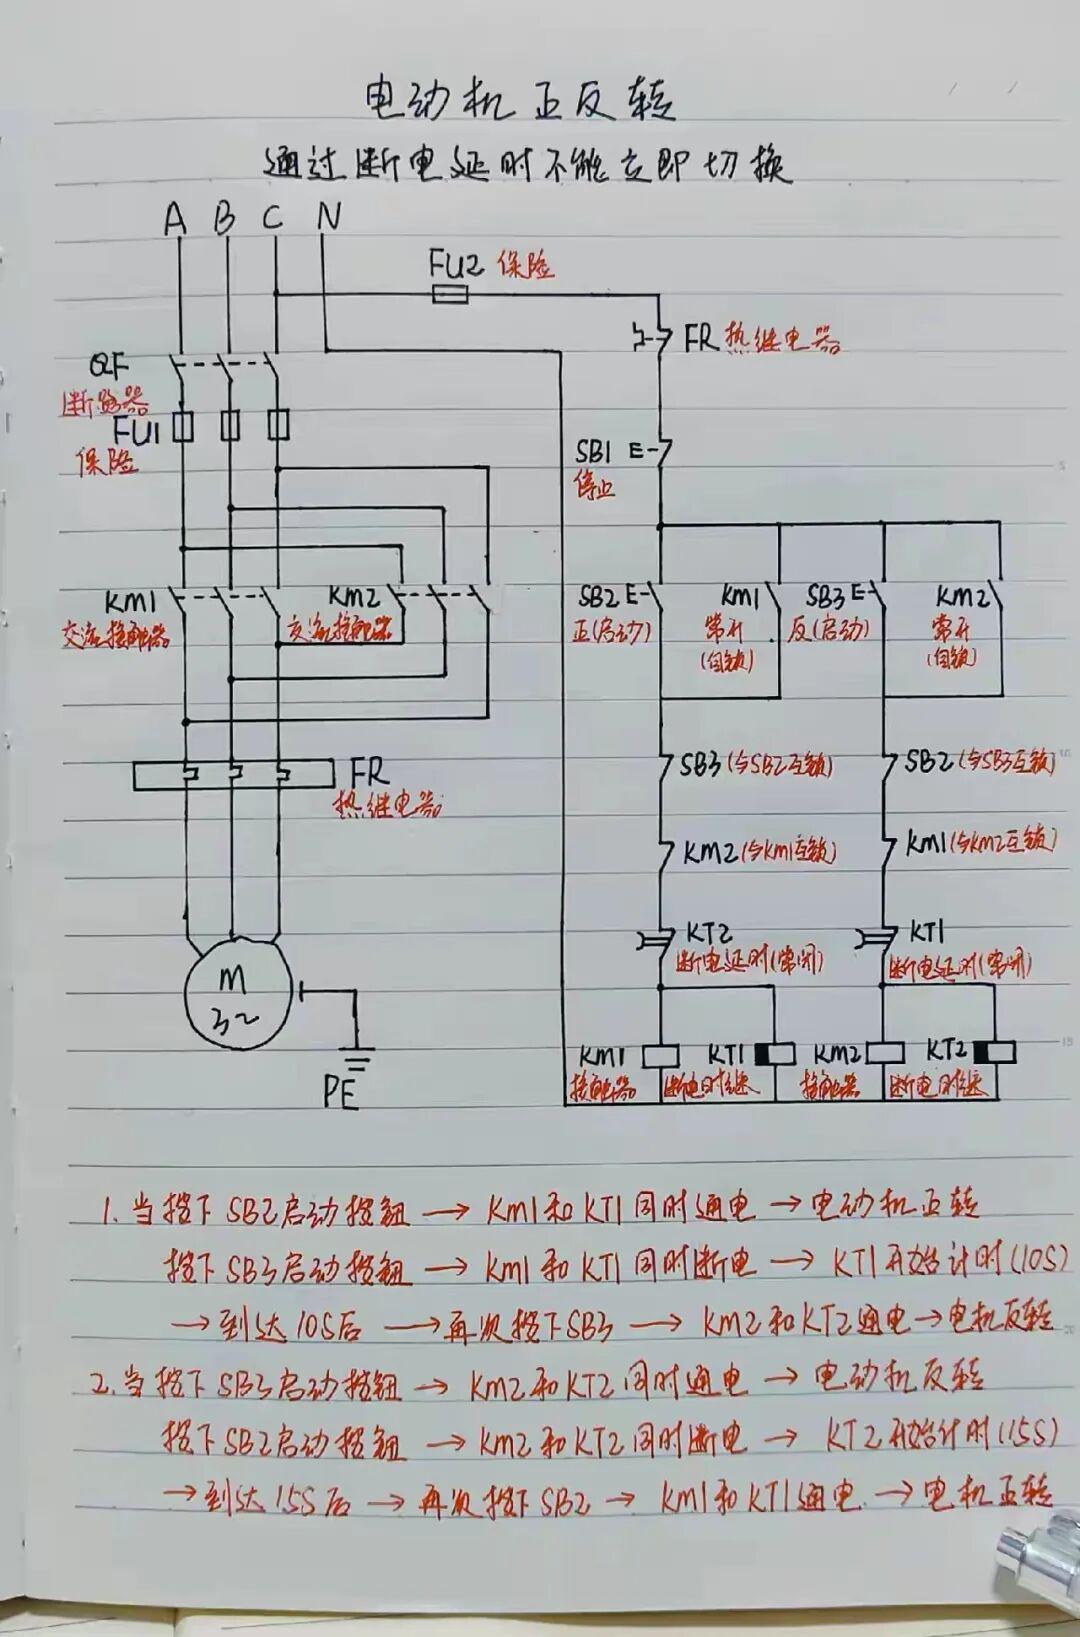 电动机正反转
通过断电延时不能立即切换
A B C N
FU2 保险
FR 热继电器
QF
断路器
FU1
保险
SB1 E
停止
KM1
交流接触器
KM2
交流接触器
SB2 E
正(启动)
KM1
常开
(自锁)
SB3 E
反(启动)
KM2
常开
(自锁)
FR
热继电器
SB3(与SB2互锁)
SB2(与SB3互锁)
KM2(与KM1互锁)
KM1(与KM2互锁)
KT2
断电延时(常闭)
KT1
断电延时(常闭)
M
3~
PE
KM1
接触器
KT1
断电时继
KM2
接触器
KT2
断电时继
1.当按下SB2启动按钮→KM1和KT1同时通电→电动机正转
按下SB3启动按钮→KM1和KT1同时断电→KT1开始计时(10S)
→到达10S后→再次按下SB3→KM2和KT2通电→电机反转
2.当按下SB3启动按钮→KM2和KT2同时通电→电动机反转
按下SB2启动按钮→KM2和KT2同时断电→KT2开始计时(15S)
→到达15S后→再次按下SB2→KM1和KT1通电→电机正转